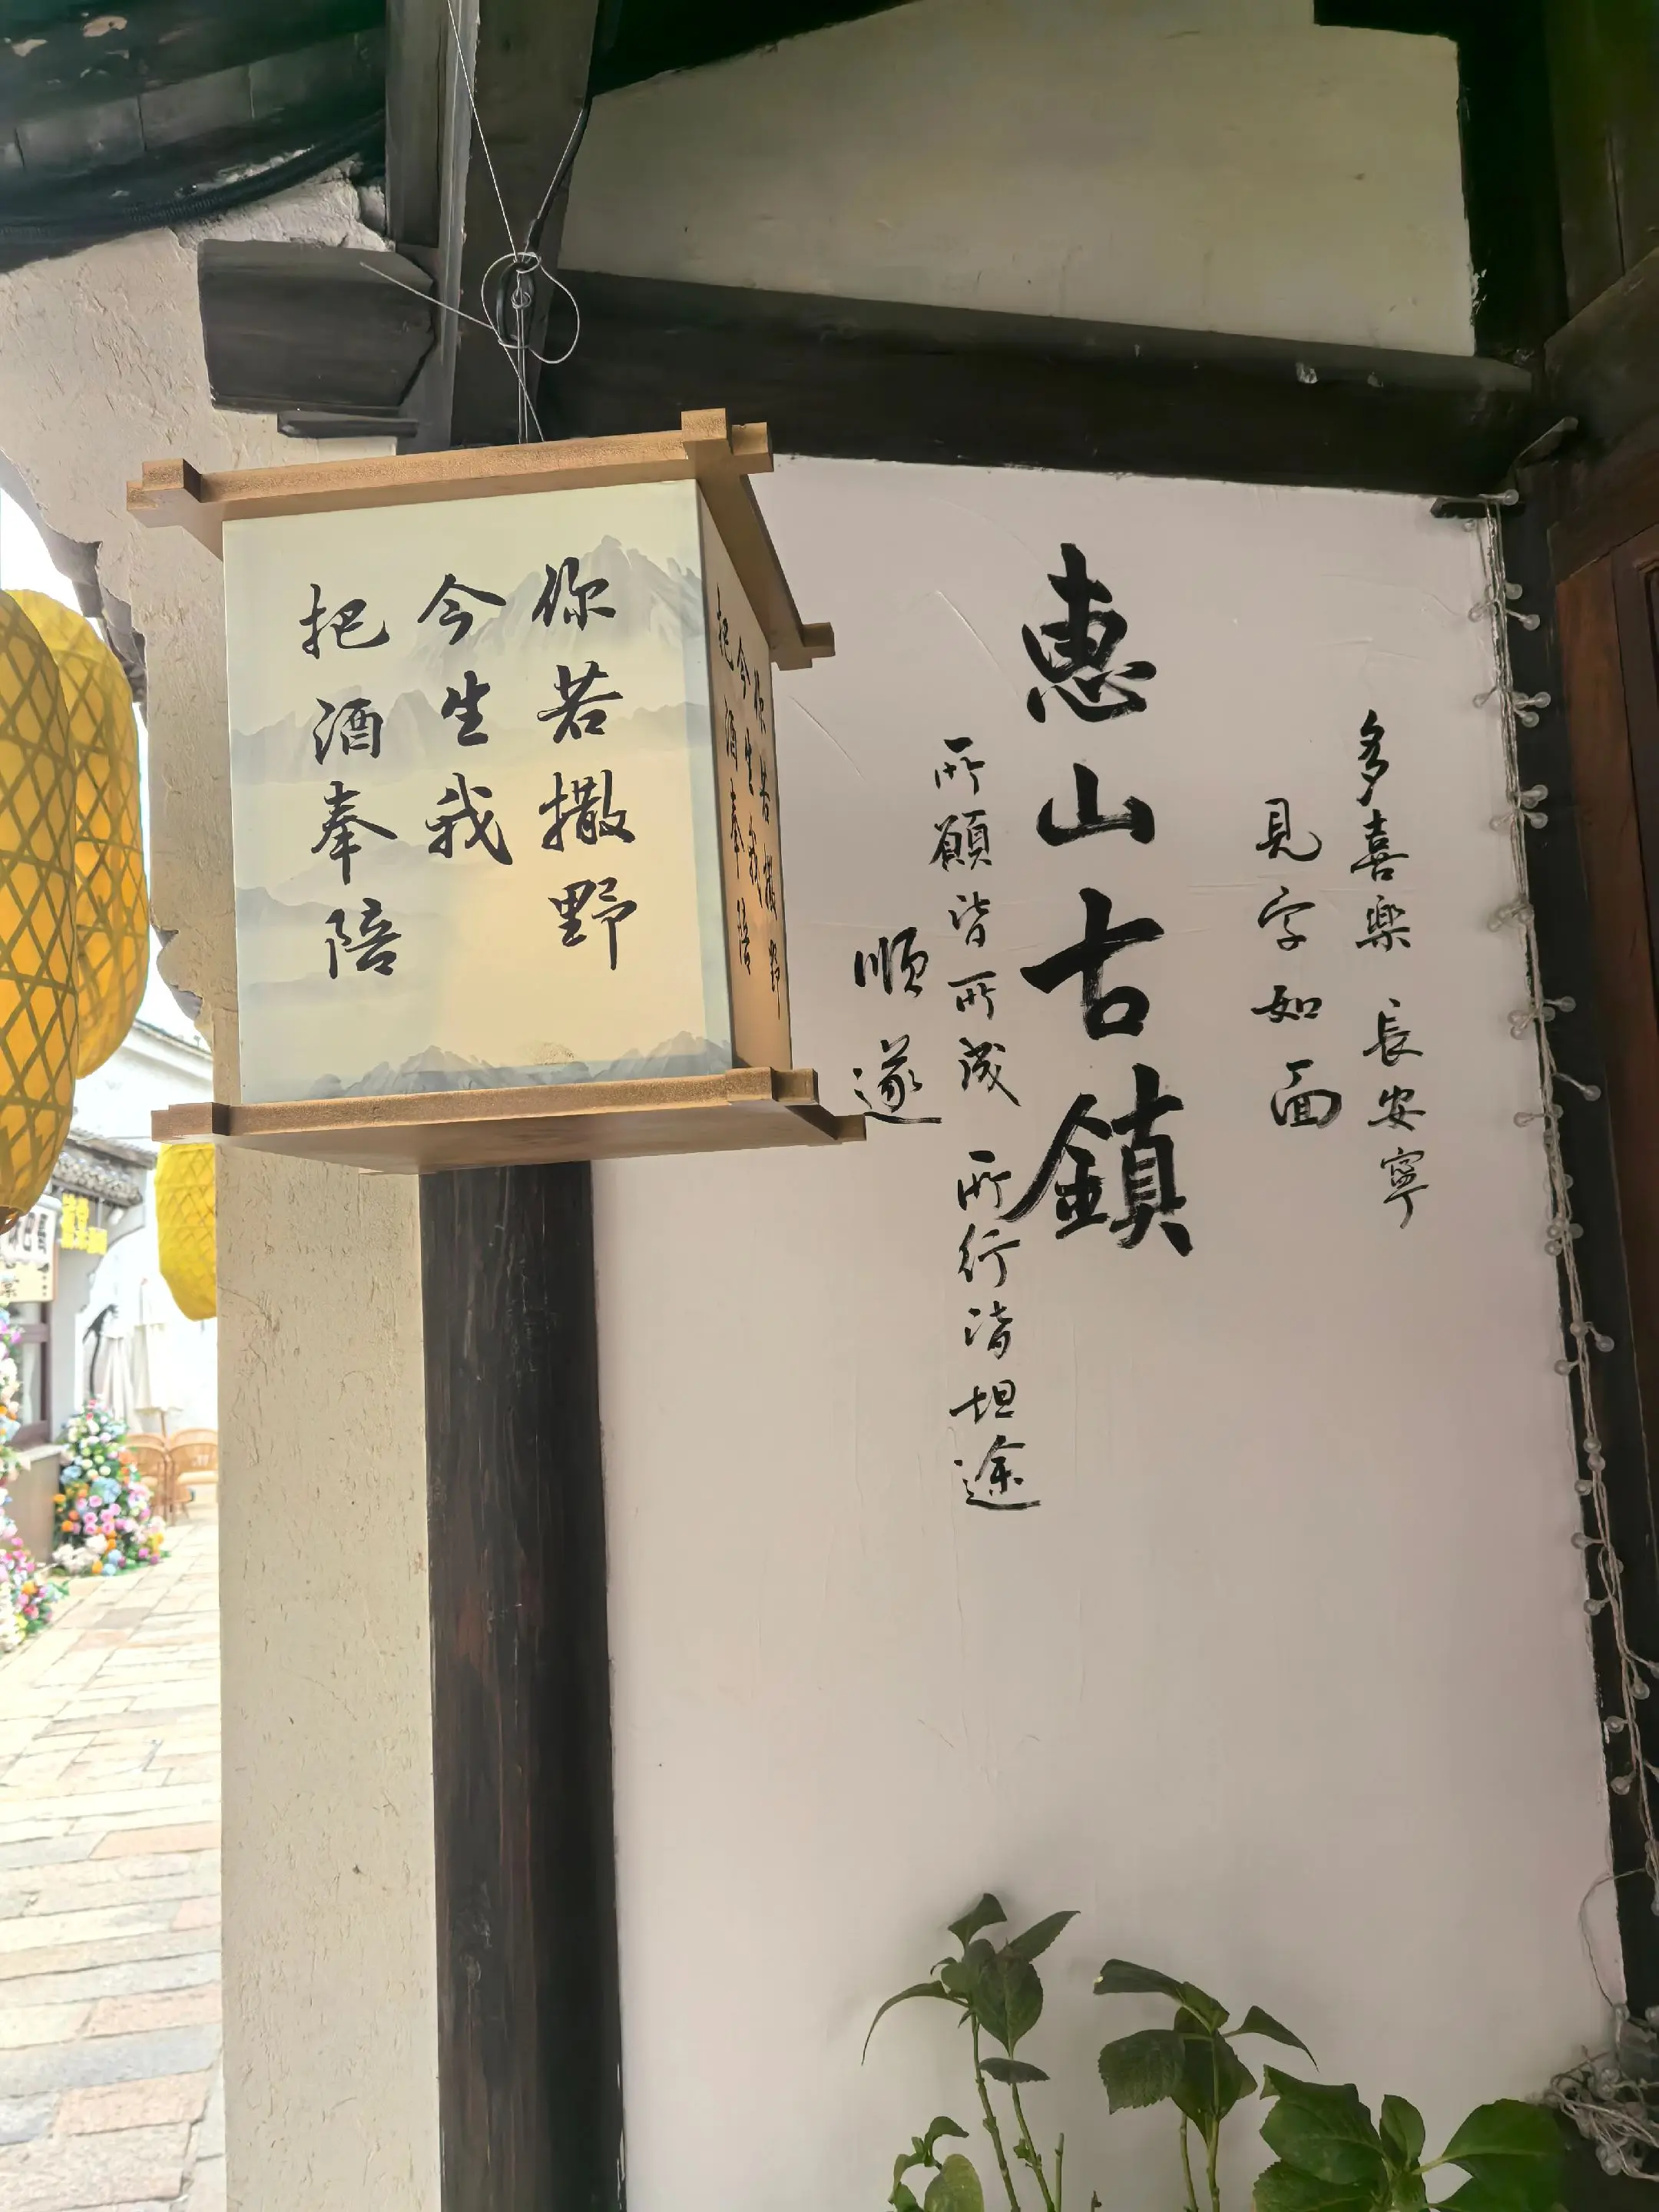 你若撒野
今生我
把酒奉陪
你若撒野
今生我
把酒奉陪
多喜樂 長安寧
見字如面
惠山古鎮
所願皆所成 所行皆坦途
順遂